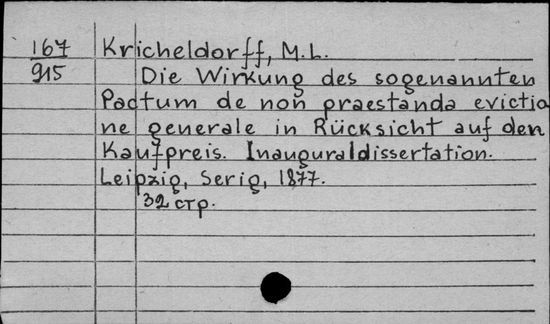 167 Kricheldorff, M.L.
915 Die Wirkung des sogenannten
Pactum de non praestanda evictio
ne generale in Rücksicht auf den
Kaufpreis. Inauguraldissertation.
Leipzig, Serig, 1877.
32 стр.